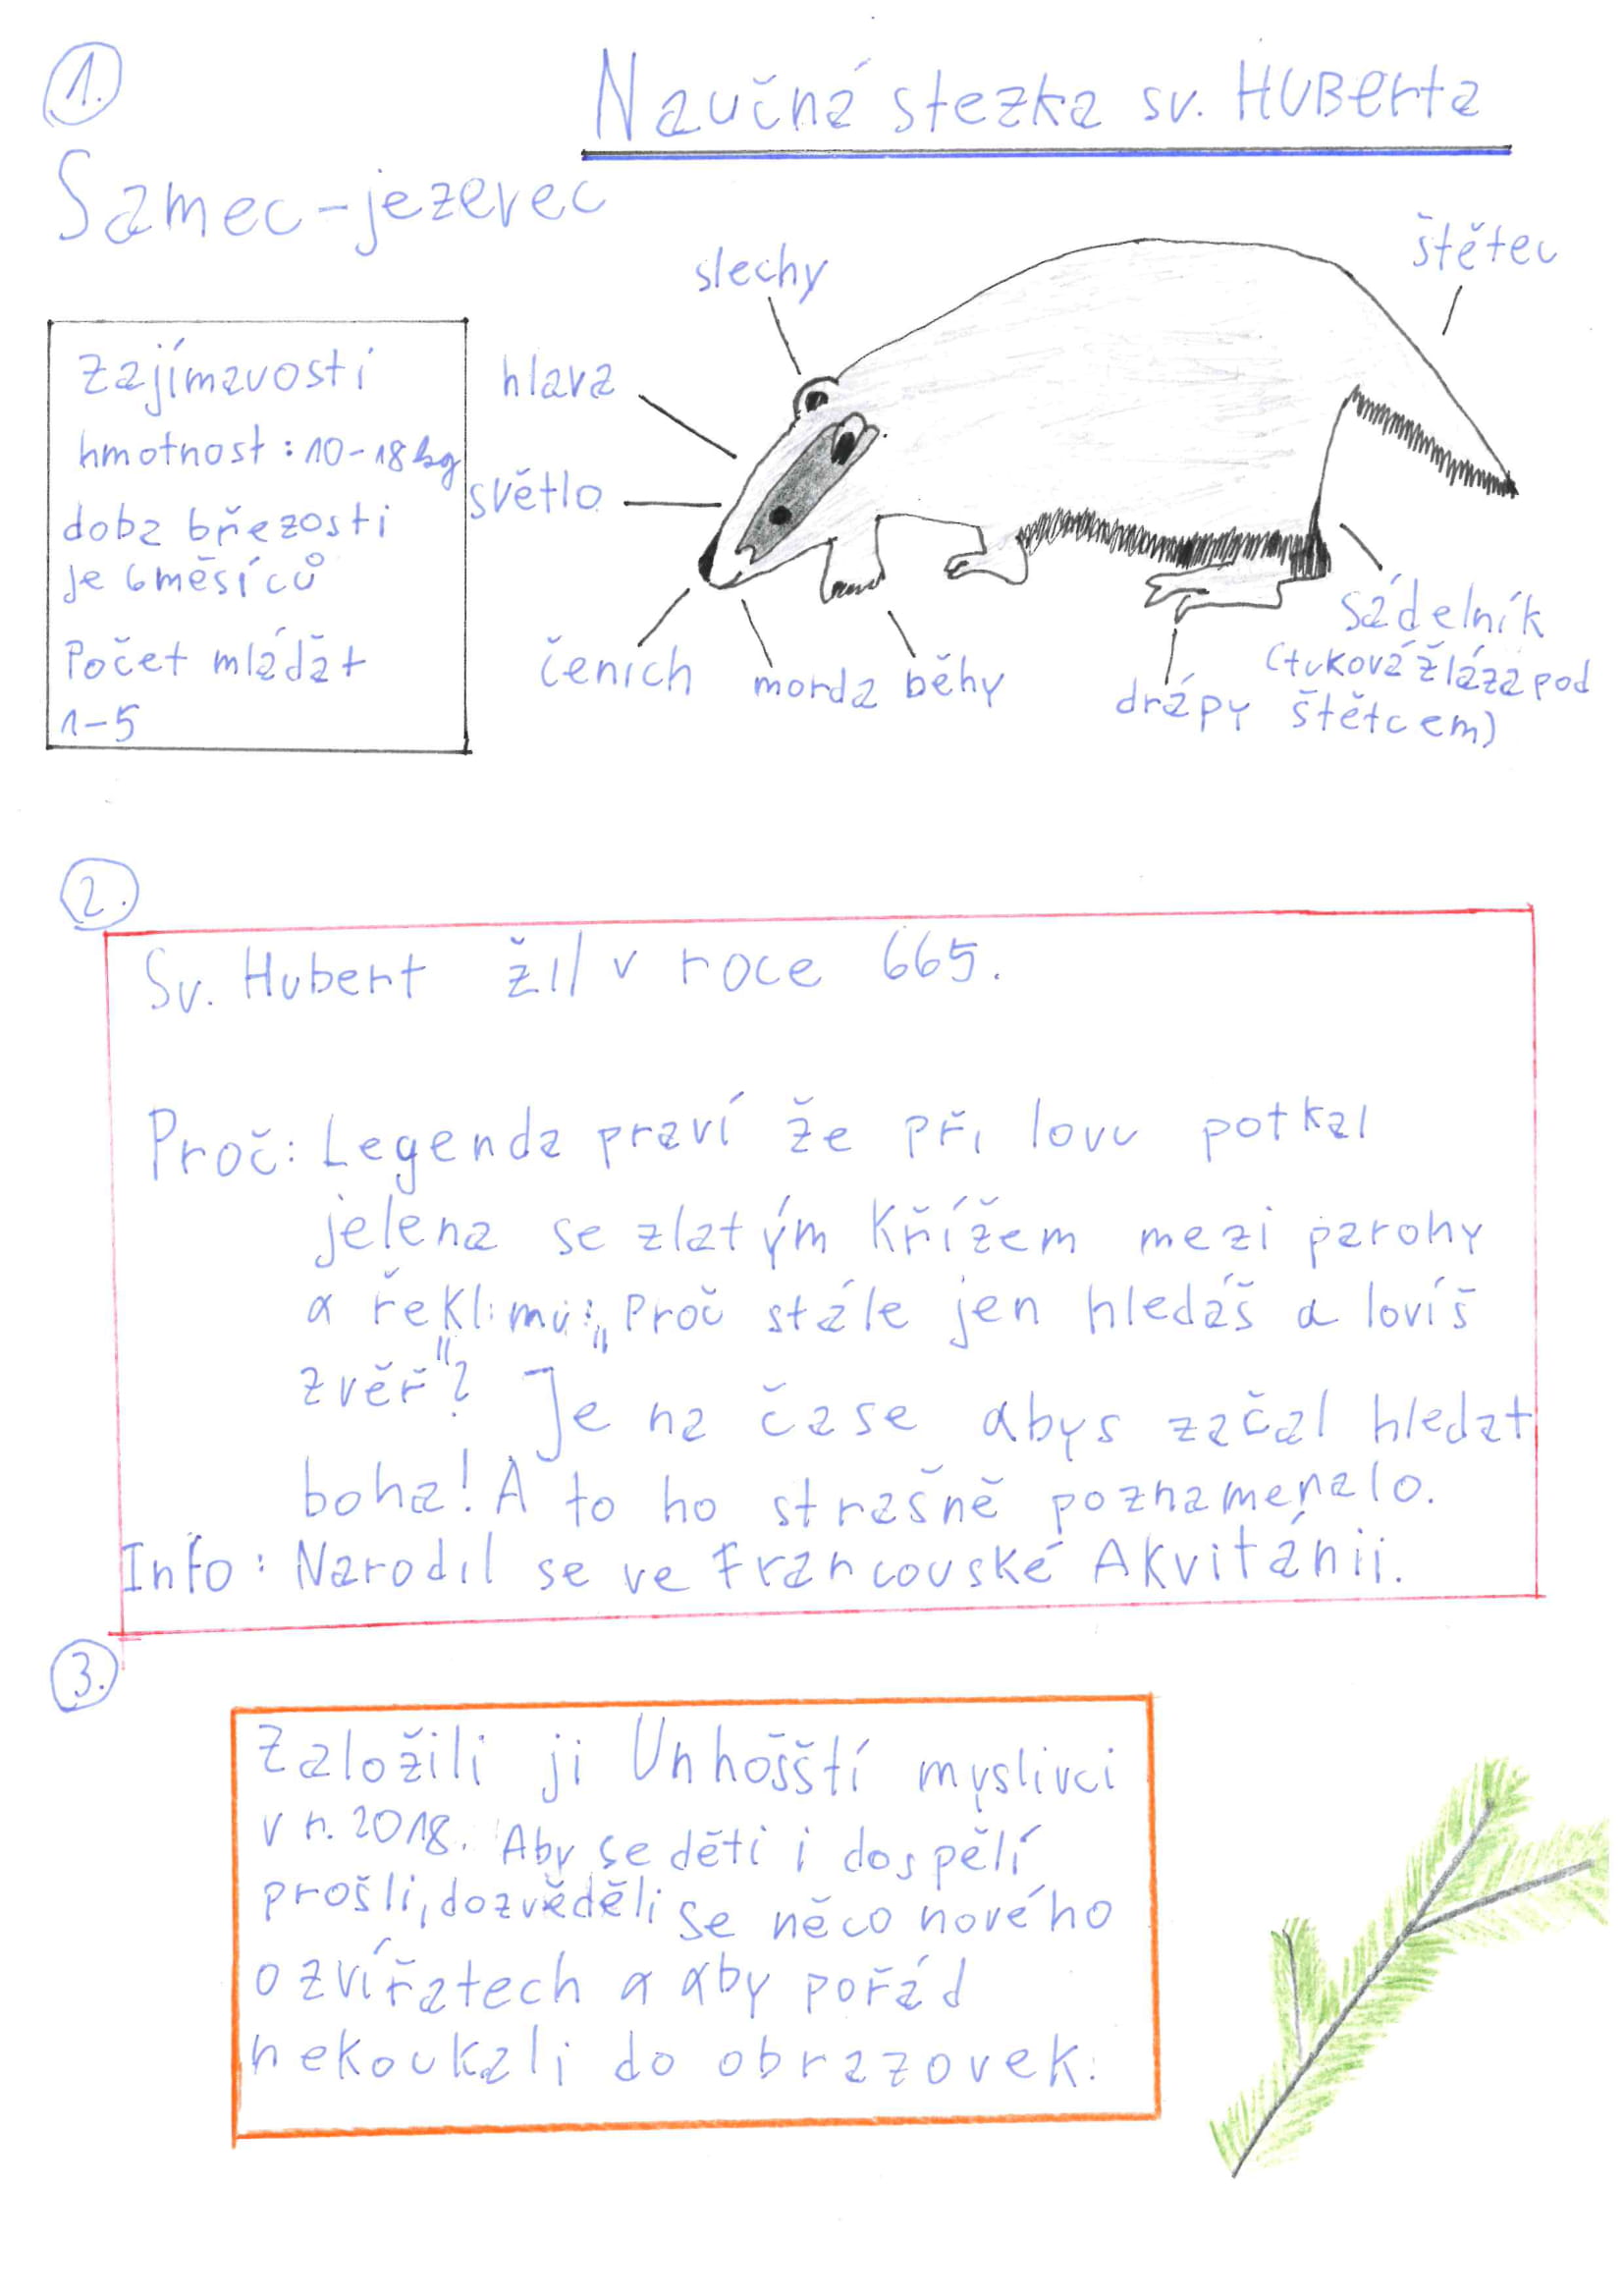 1.
Naučná stezka sv. HUBerta
Samec-jezevec
slechy
štětec
hlava
světlo
čenich
morda
běhy
drápy
sádelník
(tuková žláza pod
štětcem)
Zajímavosti
hmotnost: 10-18 kg
doba březosti
je 6 měsíců
Počet mláďat
1-5
2.
Sv. Hubert žil v roce 665.
Proč: Legenda praví že při lovu potkal
jelena se zlatým křížem mezi parohy
a řekl mu: „Proč stále jen hledáš a lovíš
zvěř"? Je na čase abys začal hledat
boha! A to ho strašně poznamenalo.
Info: Narodil se ve Francouské Akvitánii.
3.
Založili ji Unhošští myslivci
v r. 2018. Aby se děti i dospělí
prošli, dozvěděli se něco nového
o zvířatech a aby pořád
nekoukali do obrazovek.